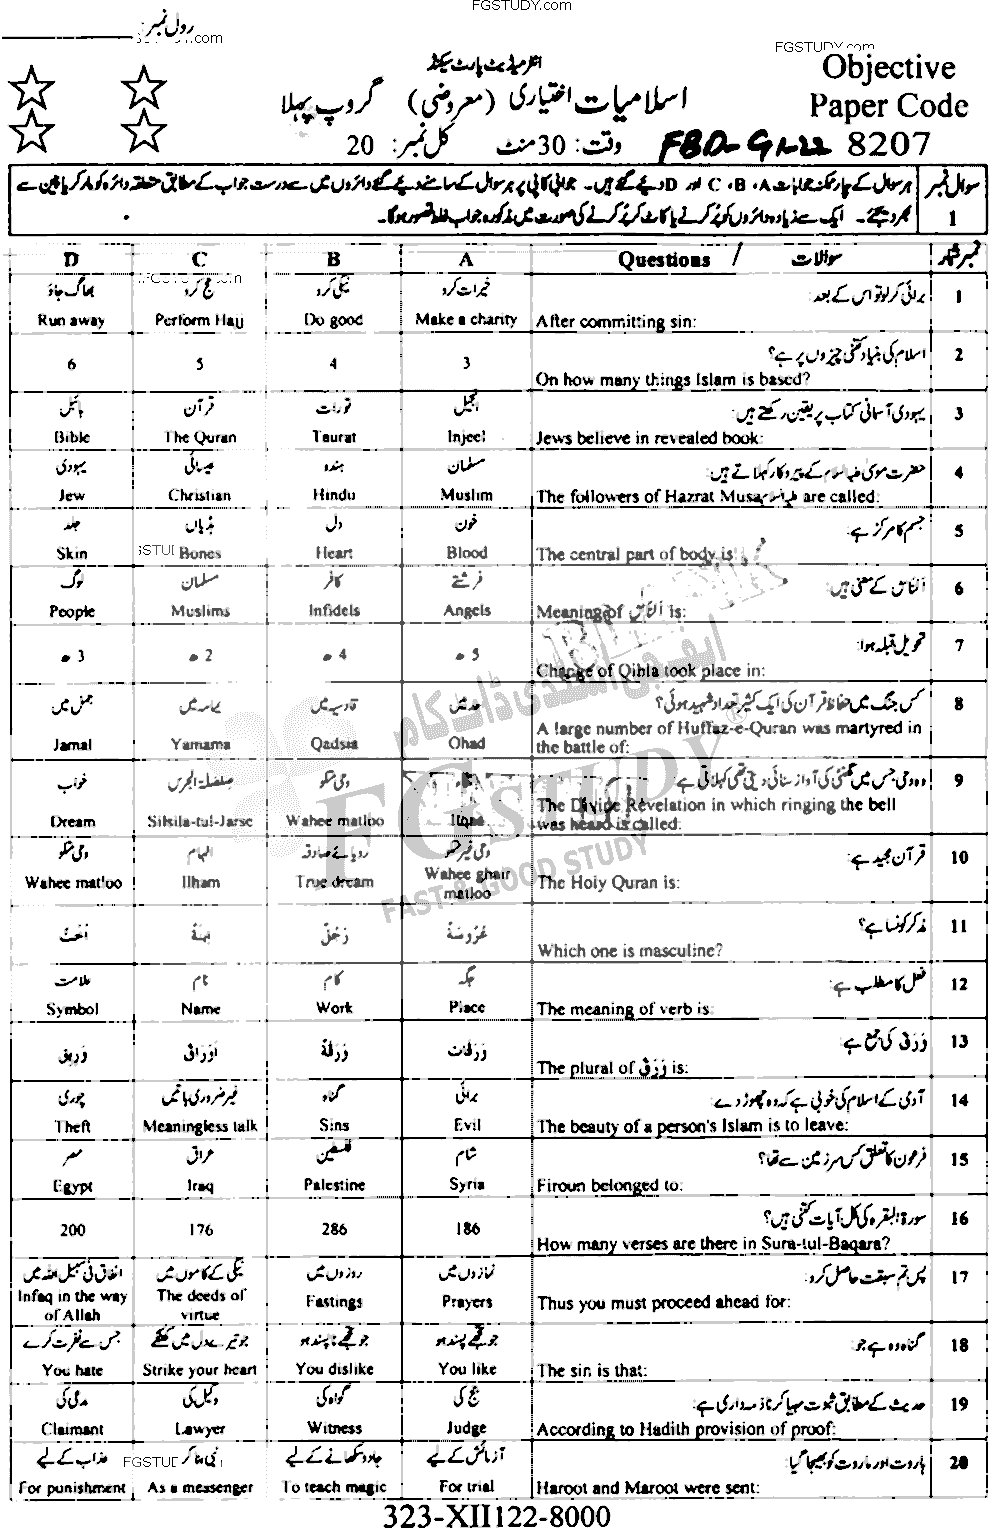 FGSTUDY.com
رول نمبر:
FGSTUDY.com
انٹرمیڈیٹ پارٹ سیکنڈ
Objective
Paper Code
8207
اسلامیات اختیاری (معروضی) گروپ پہلا
وقت: 30 منٹ کل نمبر: 20
FBD-G1-22
سوال نمبر 1
ہر سوال کے چار ممکنہ جوابات A، B، C اور D دیئے گئے ہیں۔ جوابی کاپی پر ہر سوال کے سامنے دیئے گئے دائروں میں سے درست جواب کے مطابق متعلقہ دائرہ کو مارکر یا پین سے
بھر دیجئے۔ ایک سے زیادہ دائروں کو پُر کرنے یا کاٹ کر پُر کرنے کی صورت میں مذکورہ جواب غلط تصور ہوگا۔
D C B A Questions / سوالات نمبر شمار
1 برائی کر لو تو اس کے بعد:
After committing sin:
خیرات کرو نیکی کرو حج کرو بھاگ جاؤ
Run away Perform Hajj Do good Make a charity
2 اسلام کی بنیاد کتنی چیزوں پر ہے؟
On how many things Islam is based?
6 5 4 3
3 یہودی آسمانی کتاب پر یقین رکھتے ہیں:
Jews believe in revealed book:
انجیل تورات قرآن بائبل
Bible The Quran Taurat Injeel
4 حضرت موسیٰ علیہ السلام کے پیروکار کہلاتے ہیں:
The followers of Hazrat Musa علیہ السلام are called:
مسلمان ہندو عیسائی یہودی
Jew Christian Hindu Muslim
5 جسم کا مرکز ہے:
The central part of body is:
خون دل ہڈیاں جلد
Skin Bones Heart Blood
6 الناس کے معنی ہیں:
Meaning of الناس is:
فرشتے کافر مسلمان لوگ
People Muslims Infidels Angels
7 تحویل قبلہ ہوا:
Change of Qibla took place in:
3ھ 2ھ 4ھ 5ھ
8 کس جنگ میں حفاظ قرآن کی ایک کثیر تعداد شہید ہوئی؟
A large number of Huffaz-e-Quran was martyred in
the battle of:
احد میں قادسیہ میں یمامہ میں جمل میں
Jamal Yamama Qadsia Ohad
9 وہ وحی جس میں گھنٹی کی آواز سنائی دیتی تھی کہلاتی ہے
The Divine Revelation in which ringing the bell
was heard is called:
وحی متلو صلصلۃ الجرس خواب
Dream Silsila-tul-Jarse Wahee matloo
10 قرآن مجید ہے:
The Holy Quran is:
وحی غیر متلو رویائے صادقہ الہام وحی متلو
Wahee matloo Ilham True dream Wahee ghair matloo
11 مذکر کونسا ہے؟
Which one is masculine?
عَرُوسَةٌ رَجُلٌ اِبْنَةٌ اُخْتٌ
12 فعل کا مطلب ہے:
The meaning of verb is:
جگہ کام نام علامت
Symbol Name Work Place
13 وَرَقٌ کی جمع ہے:
The plural of وَرَقٌ is:
وَرَقَات وَرَقَةٌ اَوْرَاقٌ وَرِيقٌ
14 آدمی کے اسلام کی خوبی ہے کہ وہ چھوڑ دے:
The beauty of a person's Islam is to leave:
برائی گناہ غیر ضروری باتیں چوری
Theft Meaningless talk Sins Evil
15 فرعون کا تعلق کس سرزمین سے تھا؟
Firoun belonged to:
شام فلسطین عراق مصر
Egypt Iraq Palestine Syria
16 سورۃ البقرہ کی کل آیات کتنی ہیں؟
How many verses are there in Sura-tul-Baqara?
200 176 286 186
17 پس تم سبقت حاصل کرو:
Thus you must proceed ahead for:
نمازوں میں روزوں میں نیکی کے کاموں میں انفاق فی سبیل اللہ میں
Infaq in the way of Allah The deeds of virtue Fastings Prayers
18 گناہ وہ ہے جو:
The sin is that:
جو تجھے پسند ہو جو تجھے ناپسند ہو جو تیرے دل میں کھٹکے جس سے نفرت کرے
You hate Strike your heart You dislike You like
19 حدیث کے مطابق ثبوت مہیا کرنا ذمہ داری ہے:
According to Hadith provision of proof:
جج کی گواہ کی وکیل کی مدعی کی
Claimant Lawyer Witness Judge
20 ہاروت اور ماروت کو بھیجا گیا:
Haroot and Maroot were sent:
آزمائش کے لیے جادو سکھانے کے لیے نبی بنا کر عذاب کے لیے
For punishment As a messenger To teach magic For trial
FGSTUDY
FAST & GOOD STUDY
ایف جی اسٹڈی ڈاٹ کام
323-XII122-8000